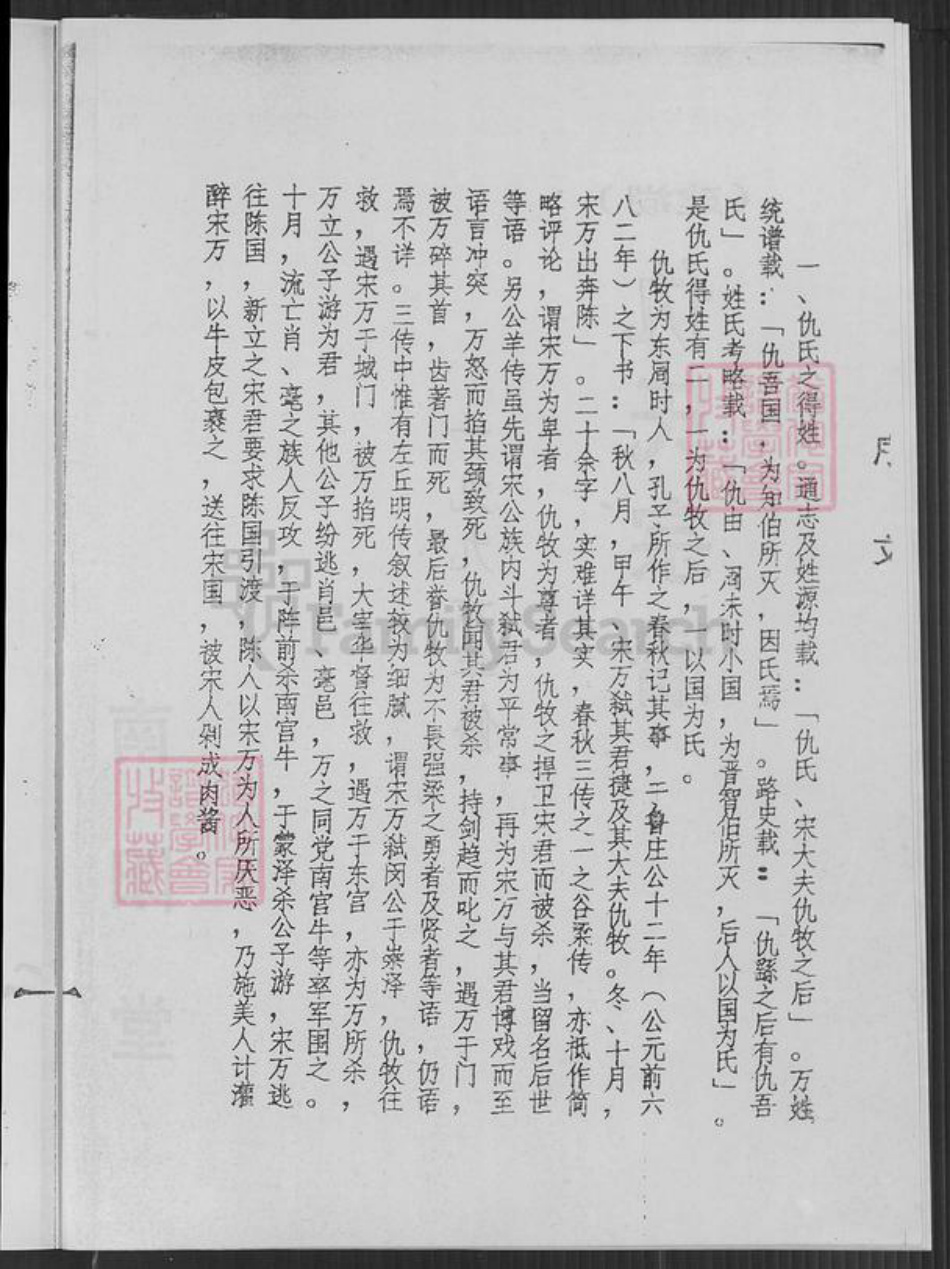 一、仇氏之得姓。通志及姓源均载：「仇氏、宋大夫仇牧之后」。万姓
统谱载：「仇吾国，为知伯所灭，因氏焉」。路史载：「仇繇之后有仇吾
氏」。姓氏考略载：「仇由、周末时小国，为晋智伯所灭，后人以国为氏」。
是仇氏得姓有二，一为仇牧之后，一以国为氏。
仇牧为东周时人，孔子所作之春秋记其事，于鲁庄公十二年（公元前六
八二年）之下书：「秋八月，甲午、宋万弑其君捷及其大夫仇牧。冬、十月，
宋万出奔陈」。二十余字，实难详其实，春秋三传之一之谷梁传，亦祇作简
略评论，谓宋万为卑者，仇牧为尊者，仇牧之捍卫宋君而被杀，当留名后世
等语。另公羊传虽先谓宋公族内斗弑君为平常事，再为宋万与其君博戏而至
语言冲突，万怒而掐其颈致死，仇牧闻其君被杀，持剑趋而叱之，遇万于门，
被万碎其首，齿著门而死，最后誉仇牧为不畏强梁之勇者及贤者等语，仍语
焉不详。三传中惟有左丘明传叙述较为细腻，谓宋万弑闵公于蒙泽，仇牧往
救，遇宋万于城门，被万掐死，大宰华督往救，遇万于东宫，亦为万所杀，
万立公子游为君，其他公子纷逃肖邑、毫邑，万之同党南宫牛等率军围之。
十月，流亡肖、毫之族人反攻，于阵前杀南宫牛，于蒙泽杀公子游，宋万逃
往陈国，新立之宋君要求陈国引渡，陈人以宋万为人所厌恶，乃施美人计灌
醉宋万，以牛皮包裹之，送往宋国，被宋人剁成肉酱。
FamilySearch